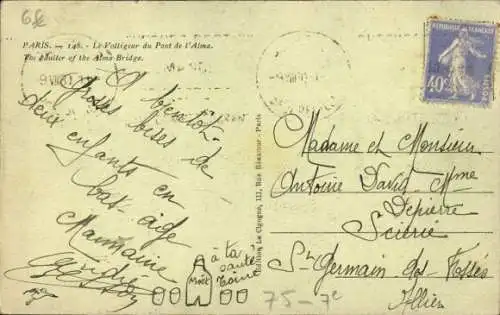 6€
PARIS. — 146. - Le Voltigeur du Pont de l'Alma.
The vaulter of the Alma Bridge.
REPUBLIQUE FRANÇAISE
40c
POSTES
A bientôt.
Grosses bises de
deux enfants en
bas-âge
Marmaine
à ta
santé
Moët
Edition La Cigogne, 111, Rue Réaumur - Paris
Madame et Monsieur
Antoine David - Mme
Depierre
Scierie
St Germain des Fossés
Allier
75 - 7e